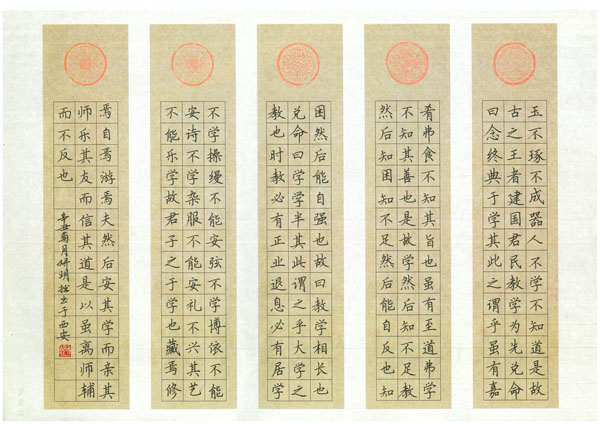 玉不琢不成器人不学不知道是故
古之王者建国君民教学为先兑命
曰念终典于学其此之谓乎虽有嘉
肴弗食不知其旨也虽有至道弗学
不知其善也是故学然后知不足教
然后知困知不足然后能自反也知
困然后能自强也故曰教学相长也
兑命曰学学半其此谓之乎大学之
教也时教必有正业退息必有居学
不学操缦不能安弦不学博依不能
安诗不学杂服不能安礼不兴其艺
不能乐学故君子之于学也藏焉修
焉自焉游焉夫然后安其学而亲其
师乐其友而信其道是以虽离师辅
而不反也
辛丑菊月妍玥书于西安